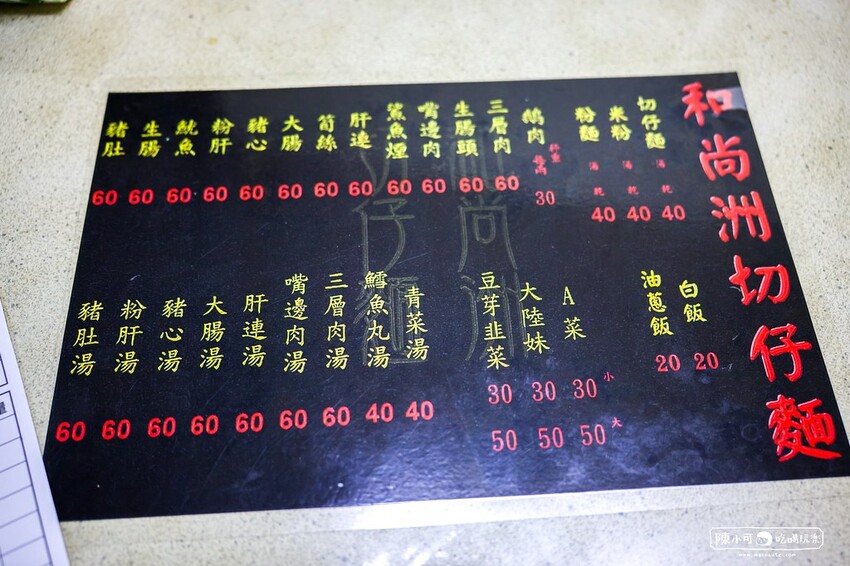 和尚洲切仔麵
切仔麵 湯 乾 40
米粉 湯 乾 40
粉麵 湯 乾 40
鵝肉 秤重 每兩 30
三層肉 60
生腸頭 60
嘴邊肉 60
鯊魚煙 60
肝連 60
筍絲 60
大腸 60
豬心 60
粉肝 60
魷魚 60
生腸 60
豬肚 60
白飯 20
油蔥飯 20
A菜 30小 50大
大陸妹 30 50
豆芽韭菜 30 50
青菜湯 40
鱈魚丸湯 40
三層肉湯 60
嘴邊肉湯 60
肝連湯 60
大腸湯 60
豬心湯 60
粉肝湯 60
豬肚湯 60
陳小可 吃喝玩樂